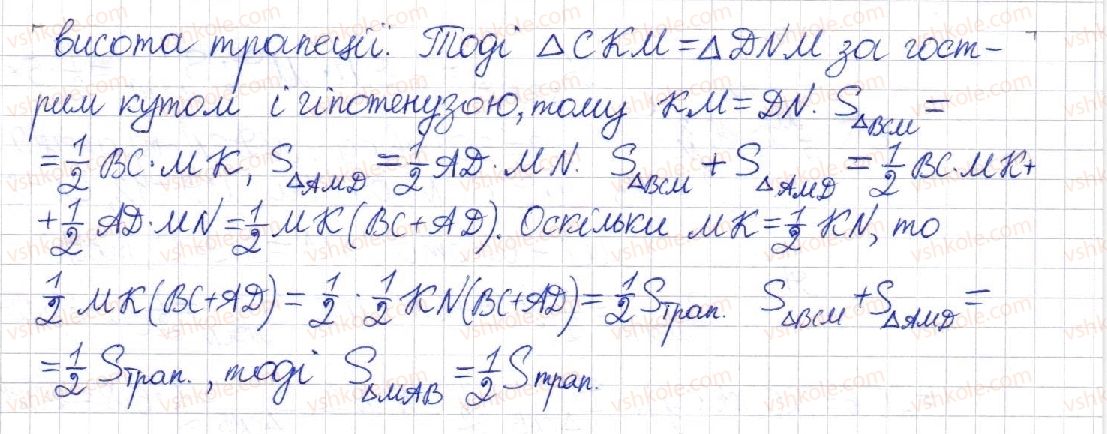 висота трапеції. Тоді △CKM = △DNM за гост-
рим кутом і гіпотенузою, тому KM = DN. S△BCM =
= 1/2 BC · MK, S△AMD = 1/2 AD · MN. S△BCM + S△AMD = 1/2 BC · MK +
+ 1/2 AD · MN = 1/2 MK (BC + AD). Оскільки MK = 1/2 KN, то
1/2 MK (BC + AD) = 1/2 · 1/2 KN (BC + AD) = 1/2 Sтрап. S△BCM + S△AMD =
= 1/2 Sтрап., тоді S△MAB = 1/2 Sтрап.